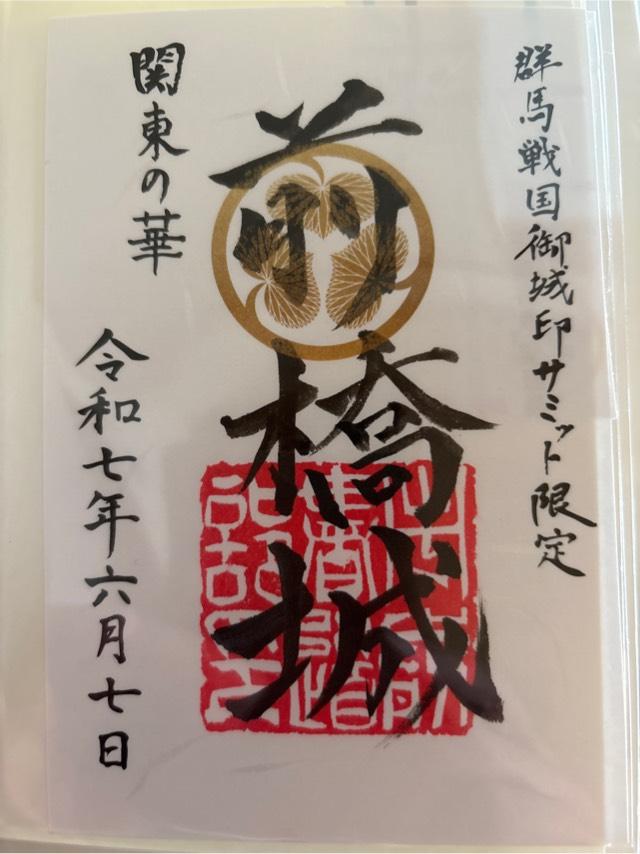 群馬戦国御城印サミット限定
前橋城
関東の華
令和七年六月七日